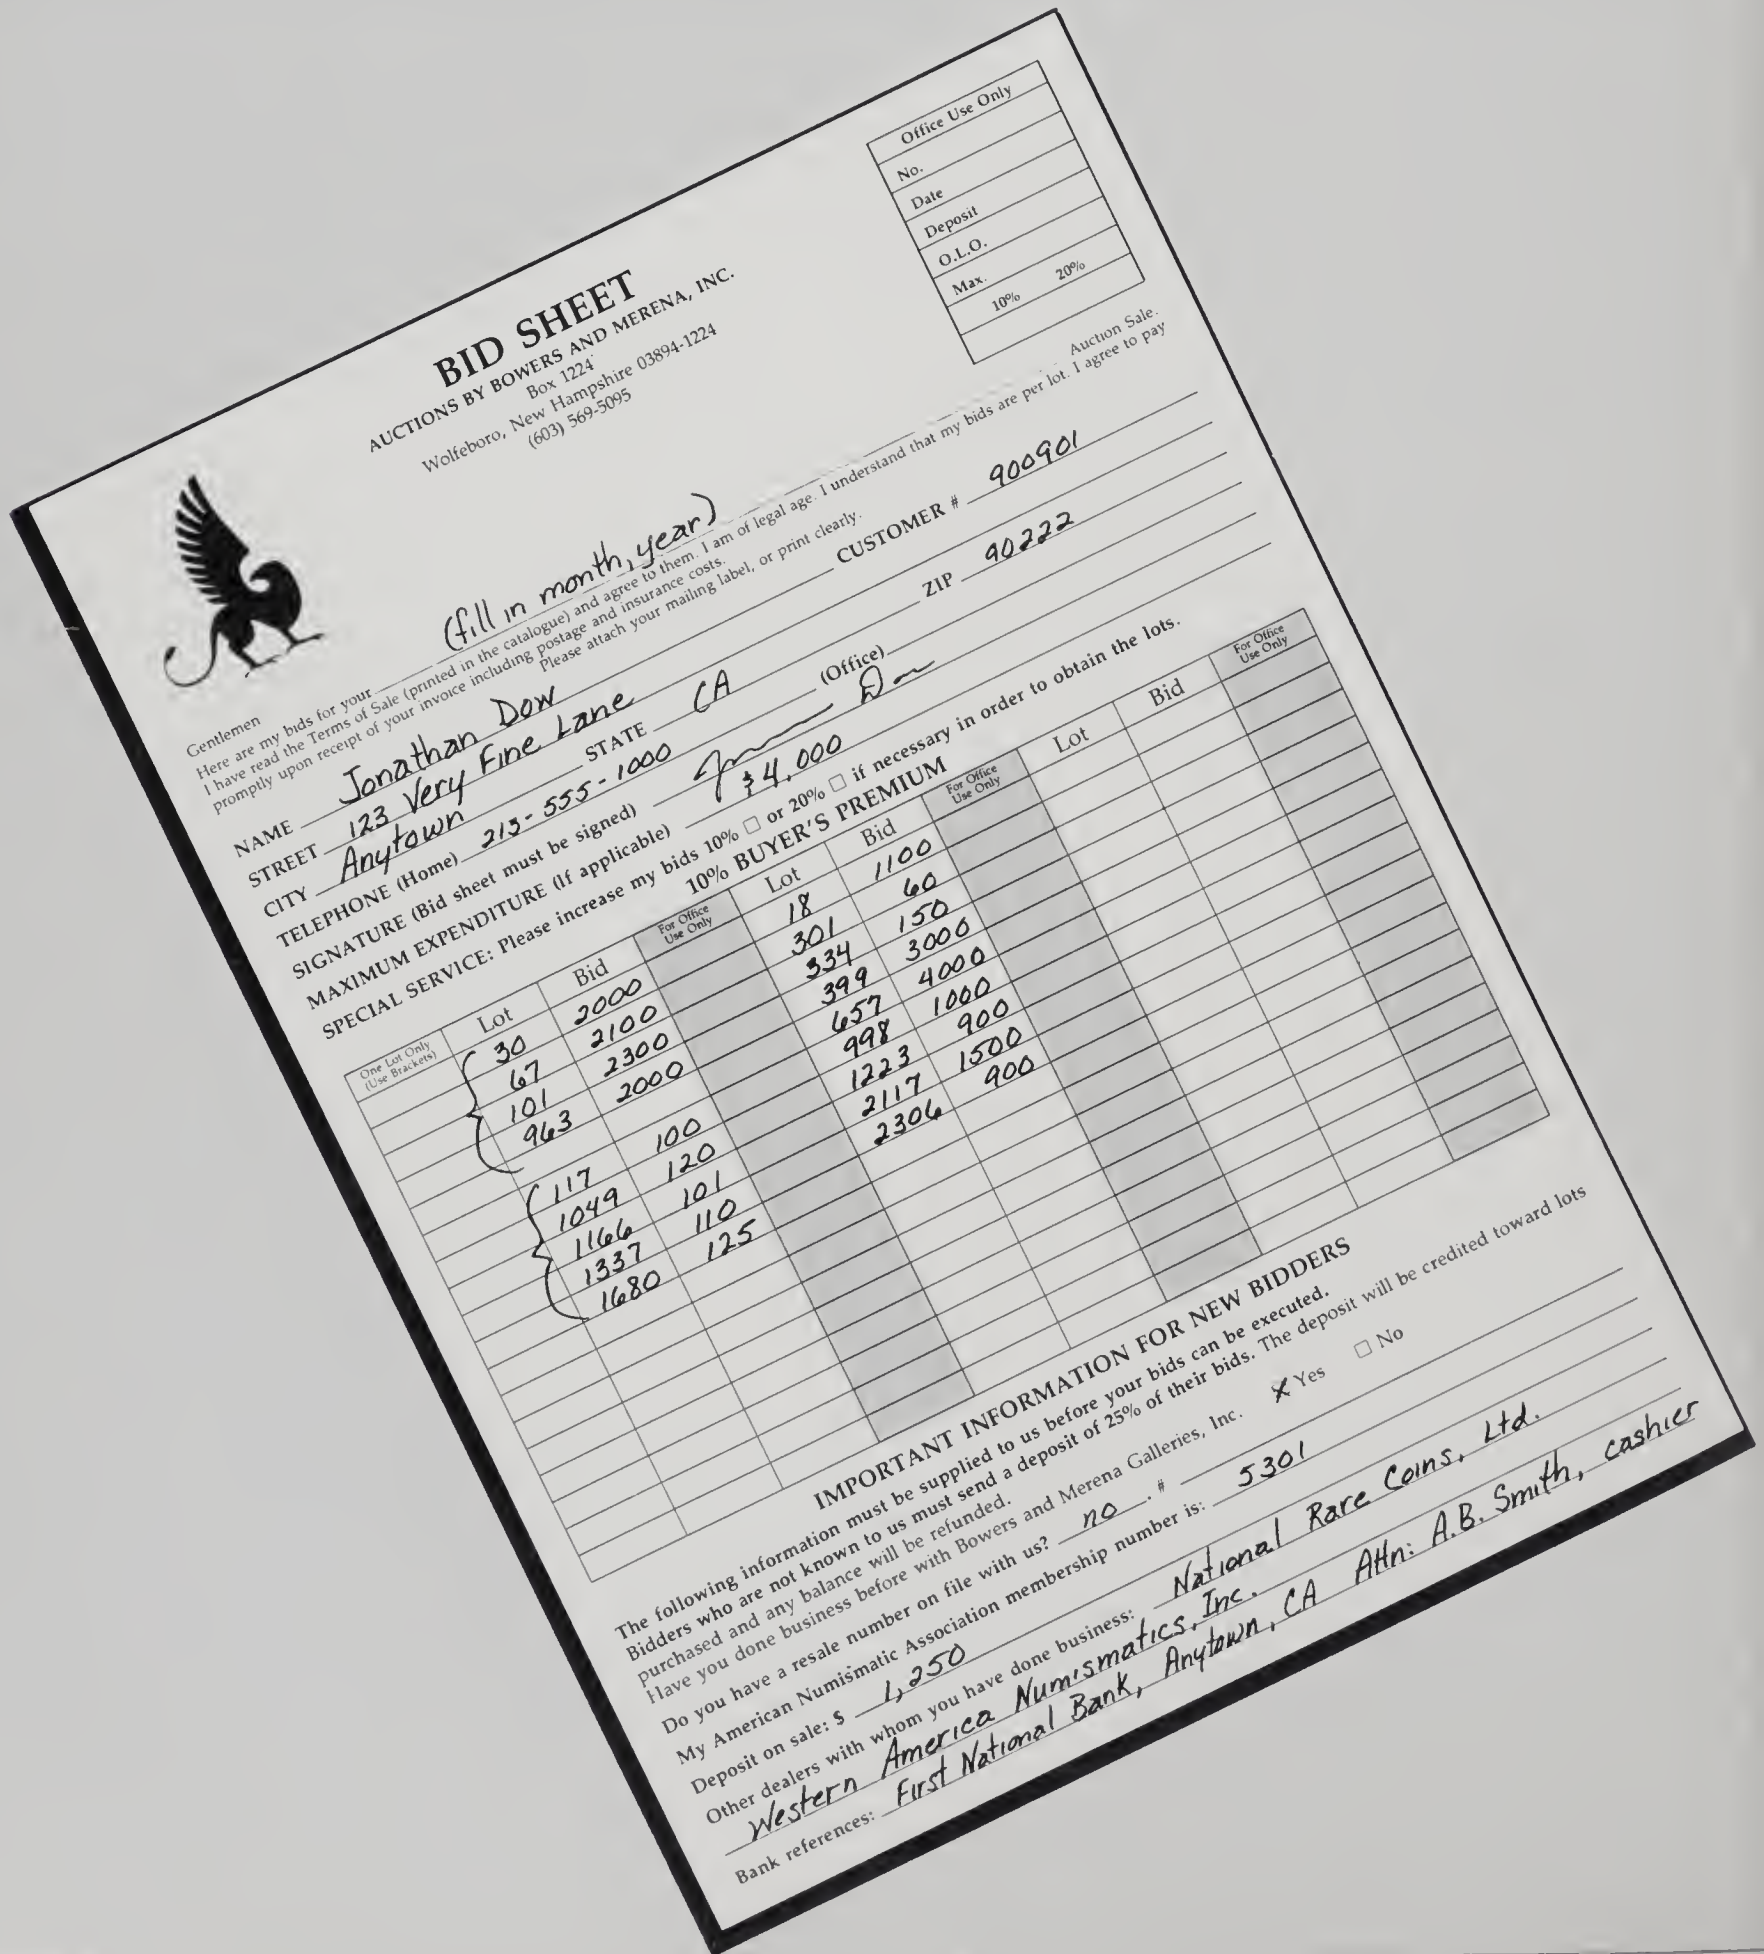 Office Use Only
No.
Date
Deposit
O.L.O.
Max.
10% 20%
BID SHEET
AUCTIONS BY BOWERS AND MERENA, INC.
Box 1224
Wolfeboro, New Hampshire 03894-1224
(603) 569-5095
Gentlemen
Here are my bids for your (fill in month, year) Auction Sale.
I have read the Terms of Sale (printed in the catalogue) and agree to them. I am of legal age. I understand that my bids are per lot. I agree to pay
promptly upon receipt of your invoice including postage and insurance costs.
Please attach your mailing label, or print clearly.
NAME Jonathan Dow CUSTOMER # 900901
STREET 123 Very Fine Lane
CITY Anytown STATE CA ZIP 90222
TELEPHONE (Home) 213-555-1000 (Office)
SIGNATURE (Bid sheet must be signed)
MAXIMUM EXPENDITURE (If applicable) $4,000
SPECIAL SERVICE: Please increase my bids 10% □ or 20% □ if necessary in order to obtain the lots.
10% BUYER'S PREMIUM
One Lot Only (Use Brackets) Lot Bid For Office Use Only Lot Bid For Office Use Only Lot Bid For Office Use Only
30 2000 18 1100
67 2100 301 60
101 2300 334 150
963 2000 399 3000
657 4000
117 100 998 1000
1049 120 1223 900
1166 101 2117 1500
1337 110 2306 900
1680 125
IMPORTANT INFORMATION FOR NEW BIDDERS
The following information must be supplied to us before your bids can be executed.
Bidders who are not known to us must send a deposit of 25% of their bids. The deposit will be credited toward lots
purchased and any balance will be refunded.
Have you done business before with Bowers and Merena Galleries, Inc. X Yes □ No
Do you have a resale number on file with us? no . #
My American Numismatic Association membership number is: 5301
Deposit on sale: $ 1,250
Other dealers with whom you have done business: National Rare Coins, Ltd.
Western America Numismatics, Inc.
Bank references: First National Bank, Anytown, CA Attn: A.B. Smith, cashier